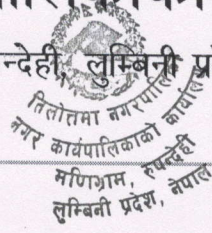 न्देही, लुम्बिनी प्र
तिलोत्तमा नगरपालि
नगर कार्यपालिकाको कार्यालय
मणिग्राम, रुपन्देही
लुम्बिनी प्रदेश, नेपाल